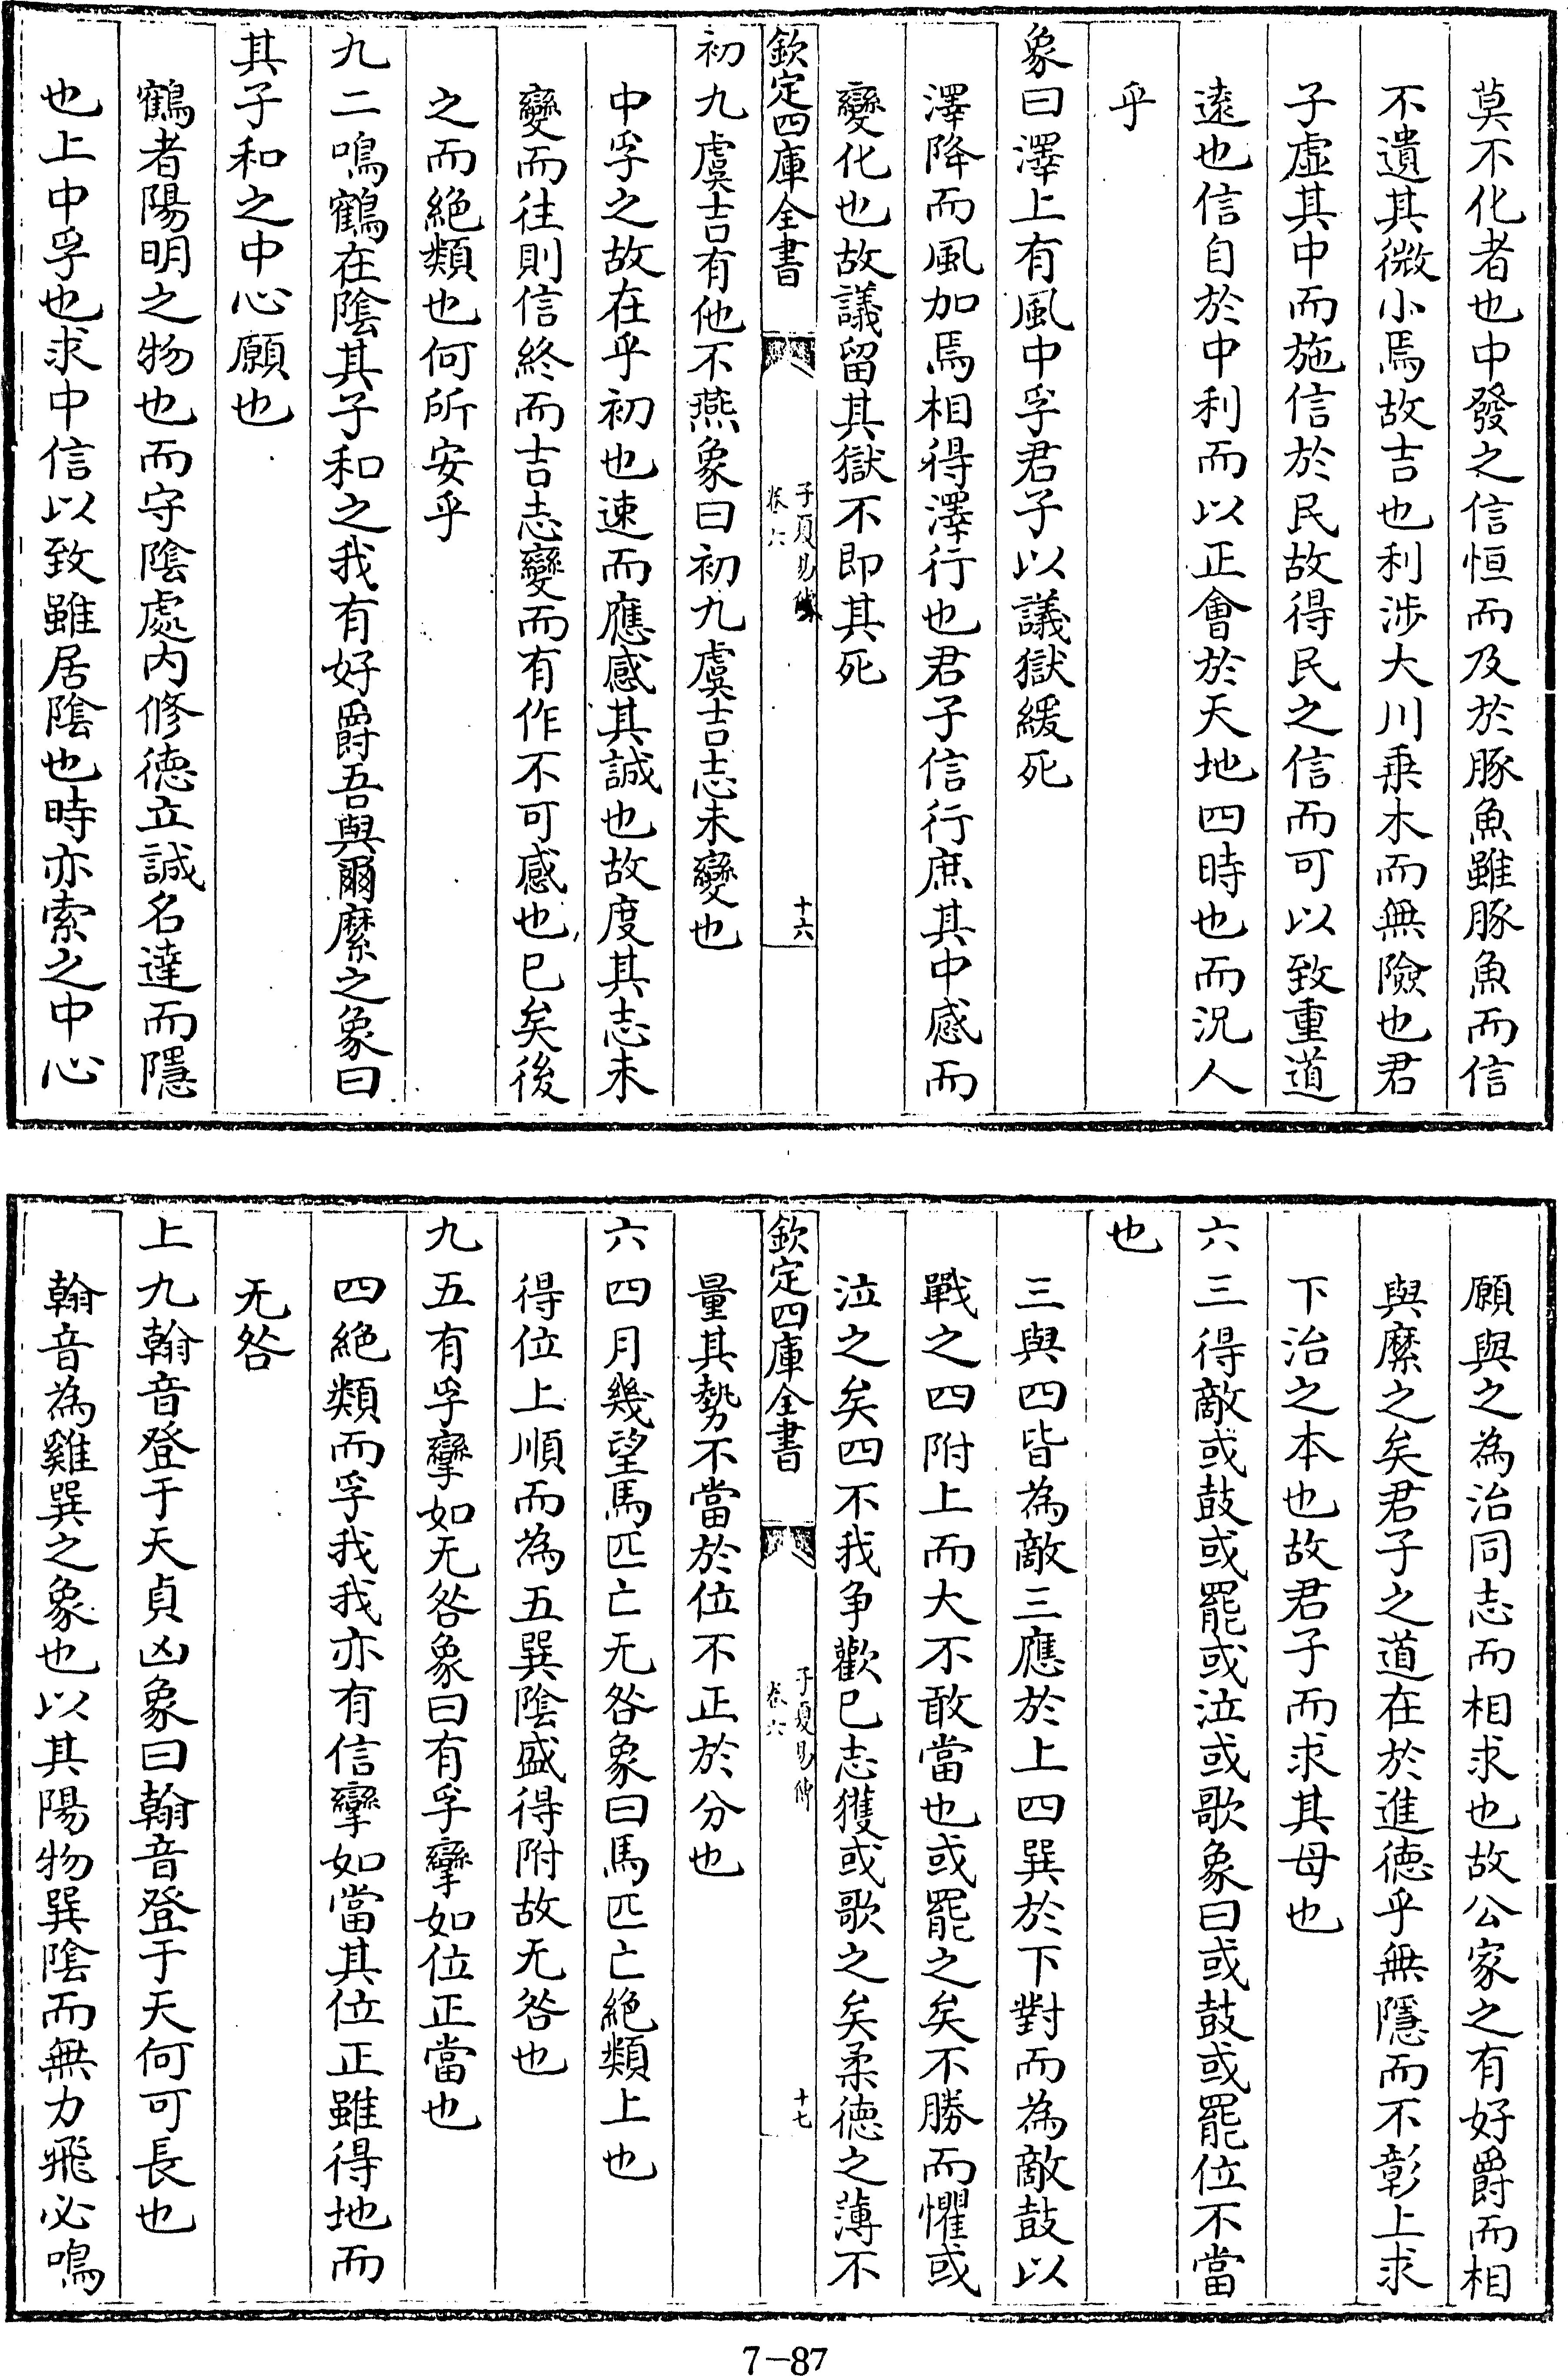 莫不化者也中發之信恒而及於豚魚雖豚魚而信
不遺其微小焉故吉也利涉大川乗木而無險也君
子虛其中而施信於民故得民之信而可以致重道
逺也信自於中利而以正會於天地四時也而況人
乎
象曰澤上有風中孚君子以議獄緩死
澤降而風加焉相得澤行也君子信行庶其中感而
變化也故議留其獄不即其死
欽定四庫全書
子夏易傳
卷六
十六
初九虞吉有他不燕象曰初九虞吉志未變也
中孚之故在乎初也速而應感其誠也故度其志未
變而往則信終而吉志變而有作不可感也已矣後
之而絶類也何所安乎
九二鳴鶴在隂其子和之我有好爵吾與爾縻之象曰
其子和之中心願也
鶴者陽明之物也而守隂處内修徳立誠名達而隱
也上中孚也求中信以致雖居隂也時亦索之中心
願與之為治同志而相求也故公家之有好爵而相
與縻之矣君子之道在於進徳乎無隱而不彰上求
下治之本也故君子而求其母也
六三得敵或鼓或罷或泣或歌象曰或鼓或罷位不當
也
三與四皆為敵三應於上四巽於下對而為敵鼓以
戰之四附上而大不敢當也或罷之矣不勝而懼或
泣之矣四不我争歡已志獲或歌之矣柔徳之薄不
欽定四庫全書
子夏易傳
卷六
十七
量其勢不當於位不正於分也
六四月幾望馬匹亡无咎象曰馬匹亡絶類上也
得位上順而為五巽隂盛得附故无咎也
九五有孚攣如无咎象曰有孚攣如位正當也
四絶類而孚我我亦有信攣如當其位正雖得地而
无咎
上九翰音登于天貞凶象曰翰音登于天何可長也
翰音為雞巽之象也以其陽物巽隂而無力飛必鳴
7-87